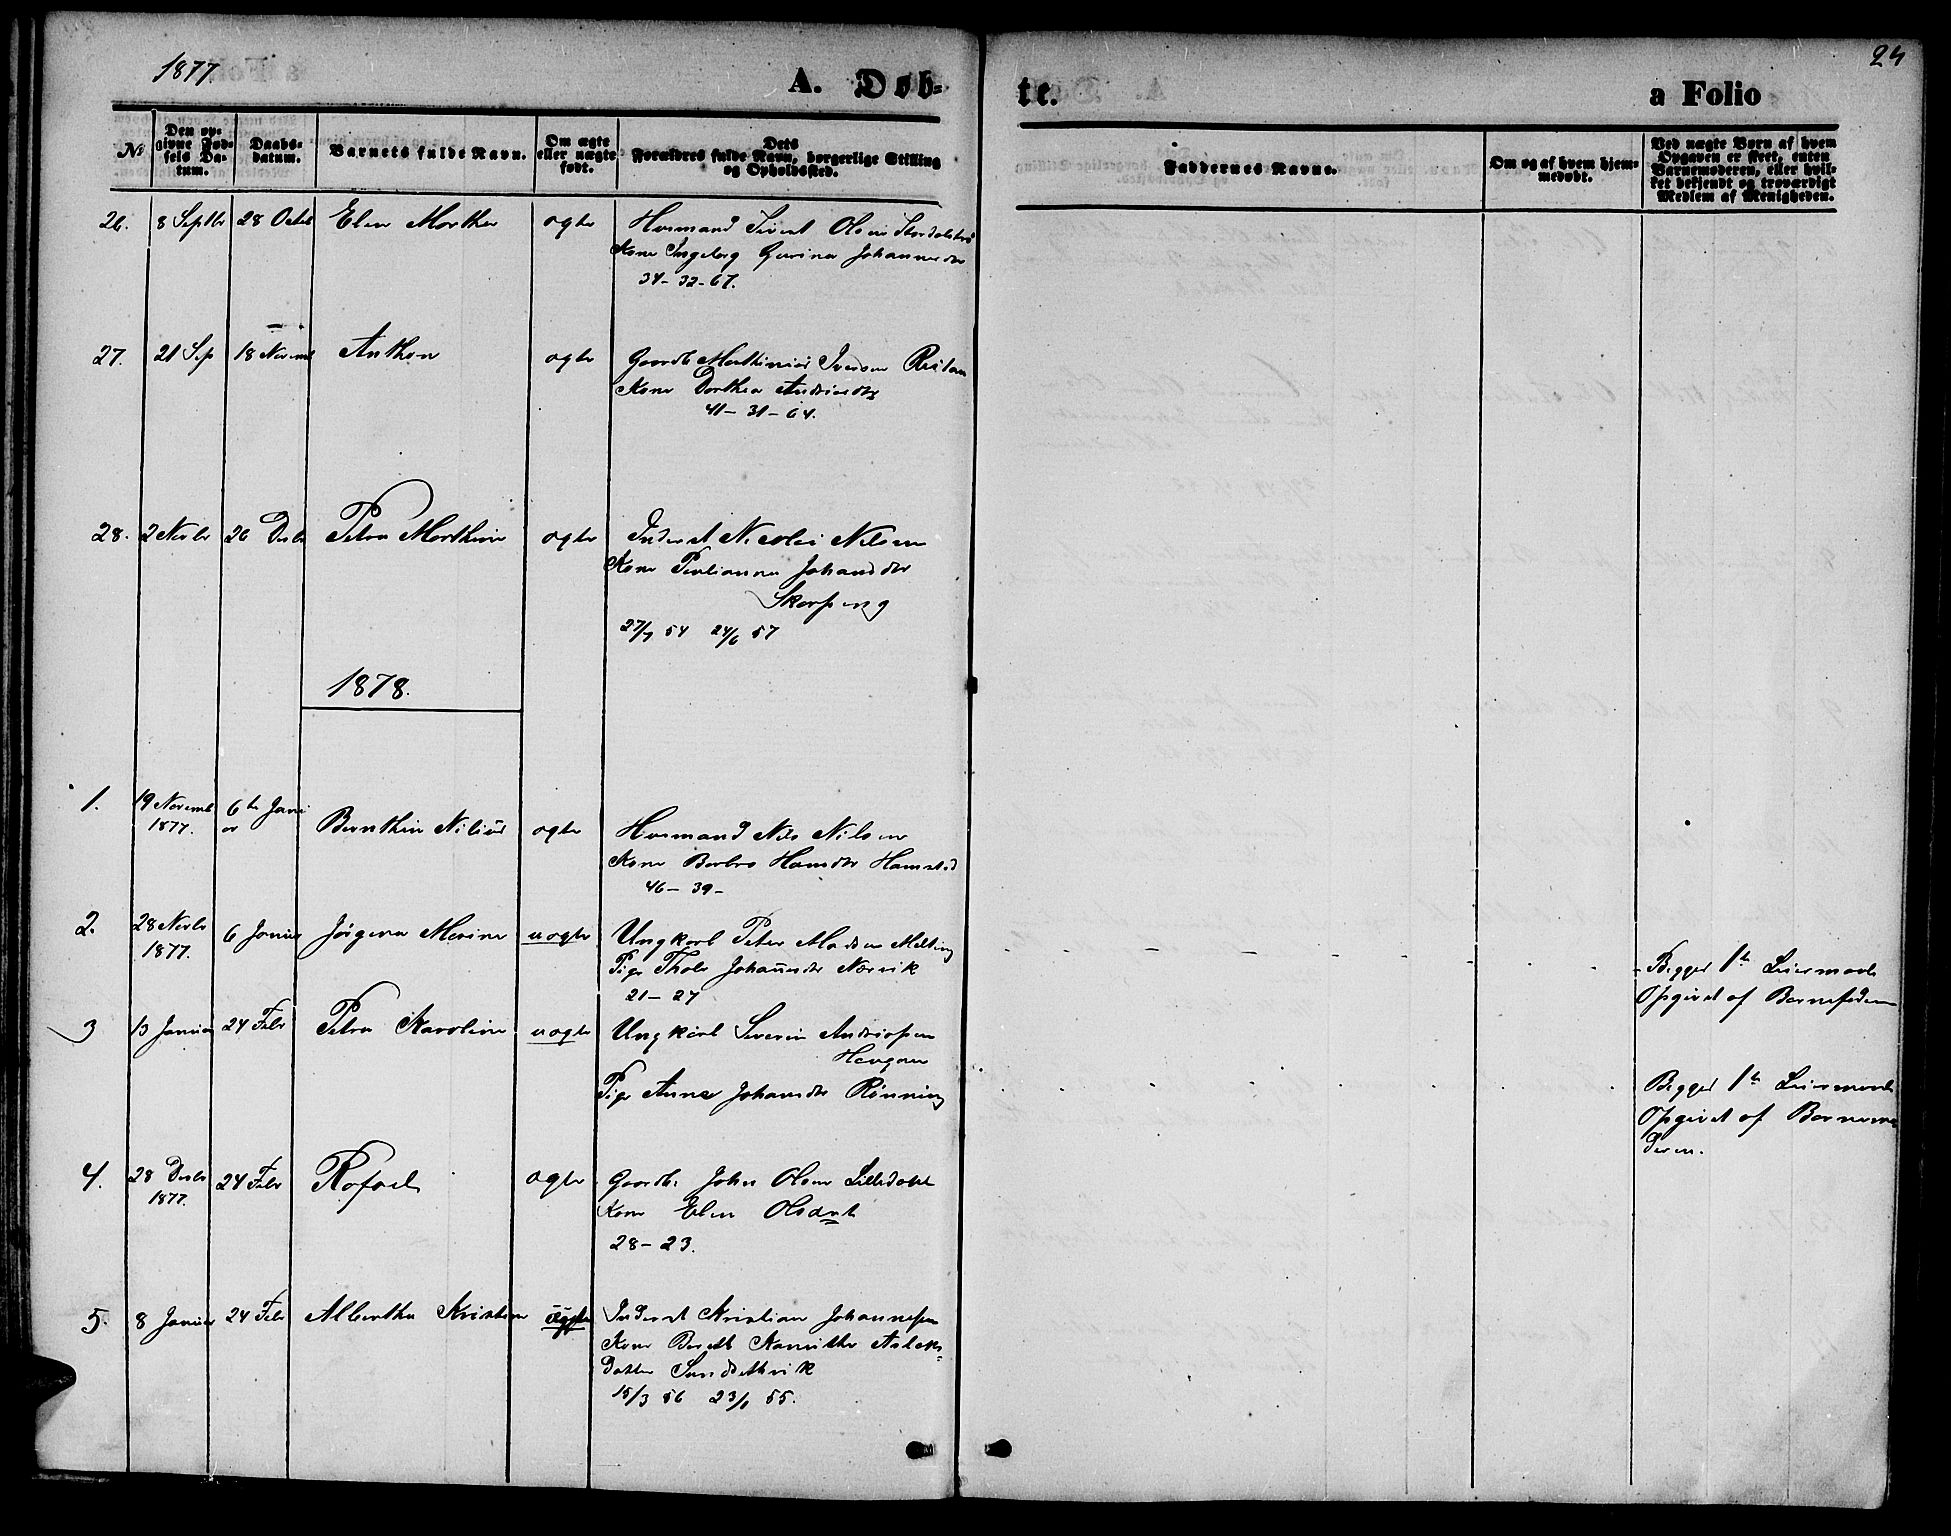 1877.
A. Døb-
te.
a Folio
24
No
Den op-
givne Fød-
sels Da-
tum.
Daabs-
datum.
Barnets fulde Navn.
Om ægte
eller uægte
født.
Dets
Forældres fulde Navn, borgerlige Stilling
og Opholdssted.
Faddernes Navne.
Om og af hvem hjem-
medøbt.
Ved uægte Børn af hvem
Opgaven er skeet, enten
Barnemoderen, eller hvil-
ket bekjendt og troværdigt
Medlem af Menigheden.
26. 8 Septbr 28 Octob Elen Martha ægte Husmand Sivert Olsen
Kone Ingeborg Gurina Johannesdtr
34-32-67.
27. 21 Sep 18 Novemb Anthon ægte Gaardb Marthinius Iversen Ristan
Kone Dorthea Andriasdtr
41-31-64.
28. 2 Novbr 26 Decbr Petra Marthine ægte Inderst Nicolai Nilsen
Kone Johansdtr
Skarpeng
27/7 54 24/6 57
1878.
1. 19 Novemb 1877. 6te Janu
ar Bernthin Nilius ægte Husmand Nils Nilsen
Kone Barbro Hansdtr Hamstad
46-39-
2. 28 Novbr 1877. 6 Januar Jørgena Merina uægte Ungkarl Peter Madsen Melting
Pige Johansdtr Norvik
21-27
Begges 1te Leiermaal
Opgivet af Barnefaderen
3 13 Januar 24 Febr Petra Karoline uægte Ungkarl Severin Andriassen
Haugan
Pige Anna Johansdtr Rønning
Begges 1te Leiermaal
Opgivet af Barnemo
deren.
4. 28 Decbr 1877. 24 Febr Rafael ægte Gaardb. John Olsen Lilledahl
Kone Elen Olsdat
28-23.
5. 8 Januar 24 Febr Albertha Kristine ægte Inderst Kristian Johannesen
Kone Bereth Aslak-
Datter Sundsethvik
15/3 56 23/1 55.